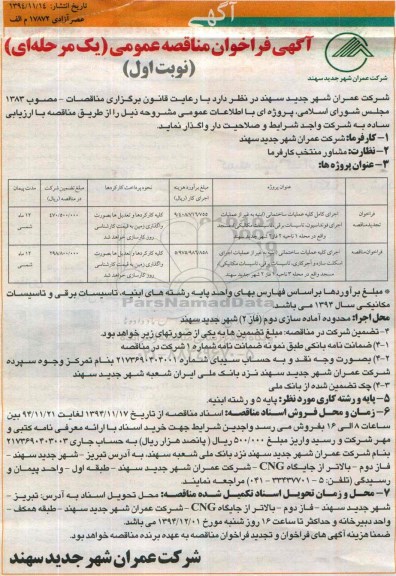 آگهی
تاریخ انتشار: ۱۳۹۴/۱۱/۱۴
عصر آزادی ۱۷۸۷۲ م الف
آگهی فراخوان مناقصه عمومی (یک مرحله‌ای)
(نوبت اول)
شرکت عمران شهر جدید سهند
شرکت عمران شهر جدید سهند در نظر دارد با رعایت قانون برگزاری مناقصات - مصوب ۱۳۸۳
مجلس شورای اسلامی، پروژه ای با اطلاعات عمومی مشروحه ذیل را از طریق مناقصه با ارزیابی
ساده به شرکت واجد شرایط و صلاحیت دار واگذار نماید.
۱- کارفرما: شرکت عمران شهر جدید سهند
۲- نظارت: مشاور منتخب کارفرما
۳- عنوان پروژه ها:
عنوان پروژه
مبلغ برآورد هزینه اجرای کار (ریال)
نحوه پرداخت کارکردها
مبلغ تضمین شرکت در مناقصه (ریال)
مدت پیمان
فراخوان تجدید مناقصه
اجرای کامل کلیه عملیات ساختمانی
کلیه کارکردها و تعدیل ها بصورت واگذاری زمین به قیمت کارشناسی روز کارسازی خواهد شد
۴۷۰/۵۰۰/۰۰۰
۱۲ ماه شمسی
فراخوان مناقصه
کلیه کارکردها و تعدیل ها بصورت واگذاری زمین به قیمت کارشناسی روز کارسازی خواهد شد
۲۹۸/۸۰۰/۰۰۰
۱۲ ماه شمسی
* مبلغ برآوردها براساس فهارس بهای واحد پایه رشته های ابنیه، تاسیسات برقی و تاسیسات
مکانیکی سال ۱۳۹۴ می باشد.
محل اجرا: محدوده آماده سازی دوم (فاز ۲) شهر جدید سهند
۴- تضمین شرکت در مناقصه: مبلغ تضمین ها به یکی از صورتهای زیر خواهد بود.
۴-۱) ضمانت نامه بانکی طبق نمونه ضمانت نامه شماره ۱ شرکت در مناقصه
۴-۲) بصورت وجه نقد و به حساب سیبای شماره ۲۱۷۳۶۹۰۳۰۳۰۰۱ بنام تمرکز وجوه سپرده
شرکت عمران شهر جدید سهند نزد بانک ملی ایران شعبه شهر جدید سهند
۴-۳) چک تضمین شده از بانک ملی
۵- پایه و رشته کاری مورد نظر: پایه ۵ و رشته ابنیه.
۶- زمان و محل فروش اسناد مناقصه: اسناد مناقصه از تاریخ ۱۳۹۴/۱۱/۱۷ لغایت ۹۴/۱۱/۲۱ بین
ساعات ۸ الی ۱۶ بفروش می رسد واجدین شرایط جهت خرید اسناد با ارائه معرفی نامه کتبی و
مهر شرکت و رسید واریز مبلغ ۵۰۰/۰۰۰ ریال (پانصد هزار ریال) به حساب جاری ۲۱۷۳۶۹۰۳۰۳۰۰۳
بنام شرکت عمران شهر جدید سهند نزد بانک ملی شعبه سهند، به آدرس تبریز - شهر جدید سهند -
فاز دوم - بالاتر از جایگاه CNG - شرکت عمران شهر جدید سهند - طبقه اول - واحد پیمان و
رسیدگی (تلفن: ۵ - ۳۳۴۳۷۷۰۱ - ۰۴۱) مراجعه نمایند.
۷- محل و زمان تحویل اسناد تکمیل شده مناقصه: محل تحویل اسناد به آدرس: تبریز -
شهر جدید سهند - فاز دوم - بالاتر از جایگاه CNG - شرکت عمران شهر جدید سهند - طبقه همکف -
واحد دبیرخانه و حداکثر تا ساعت ۱۶ روز شنبه مورخ ۱۳۹۴/۱۲/۰۱ می باشد.
ضمنا هزینه آگهی های فراخوان و تجدید فراخوان مناقصه به عهده برنده مناقصه خواهد بود.
شرکت عمران شهر جدید سهند